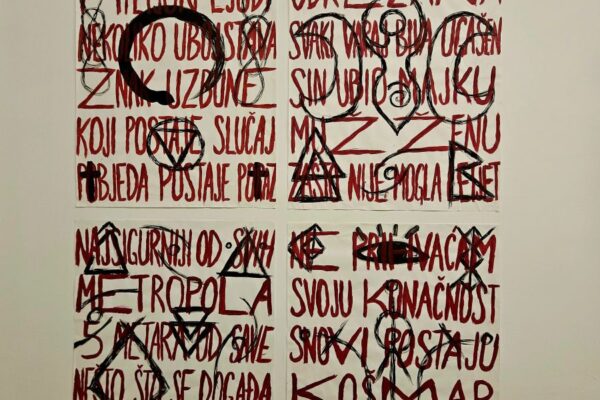 LJUDI
NEKOLIKO UBOJSTAVA
ZNAK UZBUNE
KOJI POSTAJE SLUČAJ
POBJEDA POSTAJE PORAZ
SVAKI VAPAJ BIVA UGAŠEN
SIN UBIO MAJKU
MUŽ ŽENU
ZAŠTO NIJE MOGLA
NAJSIGURNIJI OD SVIH
METROPOLA
5 METARA OD SAVE
NEŠTO ŠTO SE DOGAĐA
NE PRIHVAĆAM
SVOJU KONAČNOST
SNOVI POSTAJU
KOŠMAR